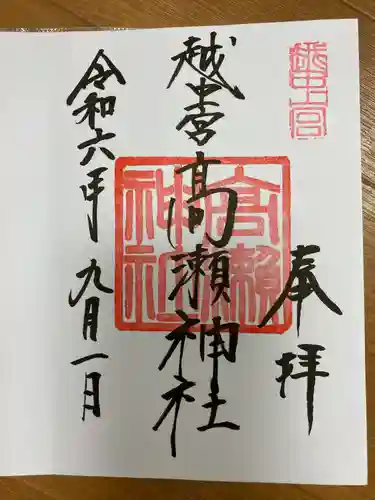 越中一宮
奉拝
越中一宮高瀬神社
高瀬神社
令和六年九月一日